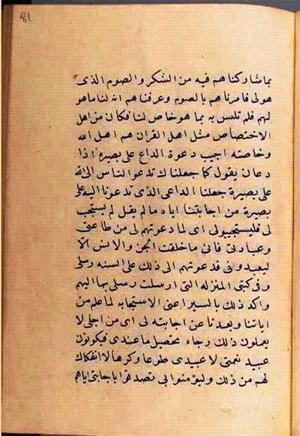 بما شاركناهم فيه من الشكر والصوم الذى
هو لى فامرناهم بالصوم وعرفناهم انه لنا ما هو
لهم فلم تلبس به بما هو خاص لنا فكان من اهل
الاختصاص مثل اهل القران هم اهل الله
وخاصته اجيب دعوة الداع على بصيرة اذا
دعان يقول كما جعلناك تدعو الناس الى الله
على بصيرة جعلنا الداعى الذى يدعونا اليه على
بصيرة من اجابتنا اياه ما لم يقل لم يستجب
لى فليستجيبوا لى اى لما دعوتهم لى من طاعتى
وعبادتى فانى ما خلقت الجن والانس الا
ليعبدونى فدعوتهم الى ذلك على السنه رسلى
وفى كتبى المنزله التى ارسلت رسلى بها اليهم
واكد ذلك بالسين اعنى الاستجابه لما علم من
ابايتنا وبعدنا عن اجابته لى اى من اجلى لا
يعملون ذلك رجاء تحصيل ما عندى فيكونون
عبيد نعمتى لا عبيدى طوعا وكرها لا انفكاك
لهم من ذلك وليؤمنوا بى تصدقوا باجابتى اياهم